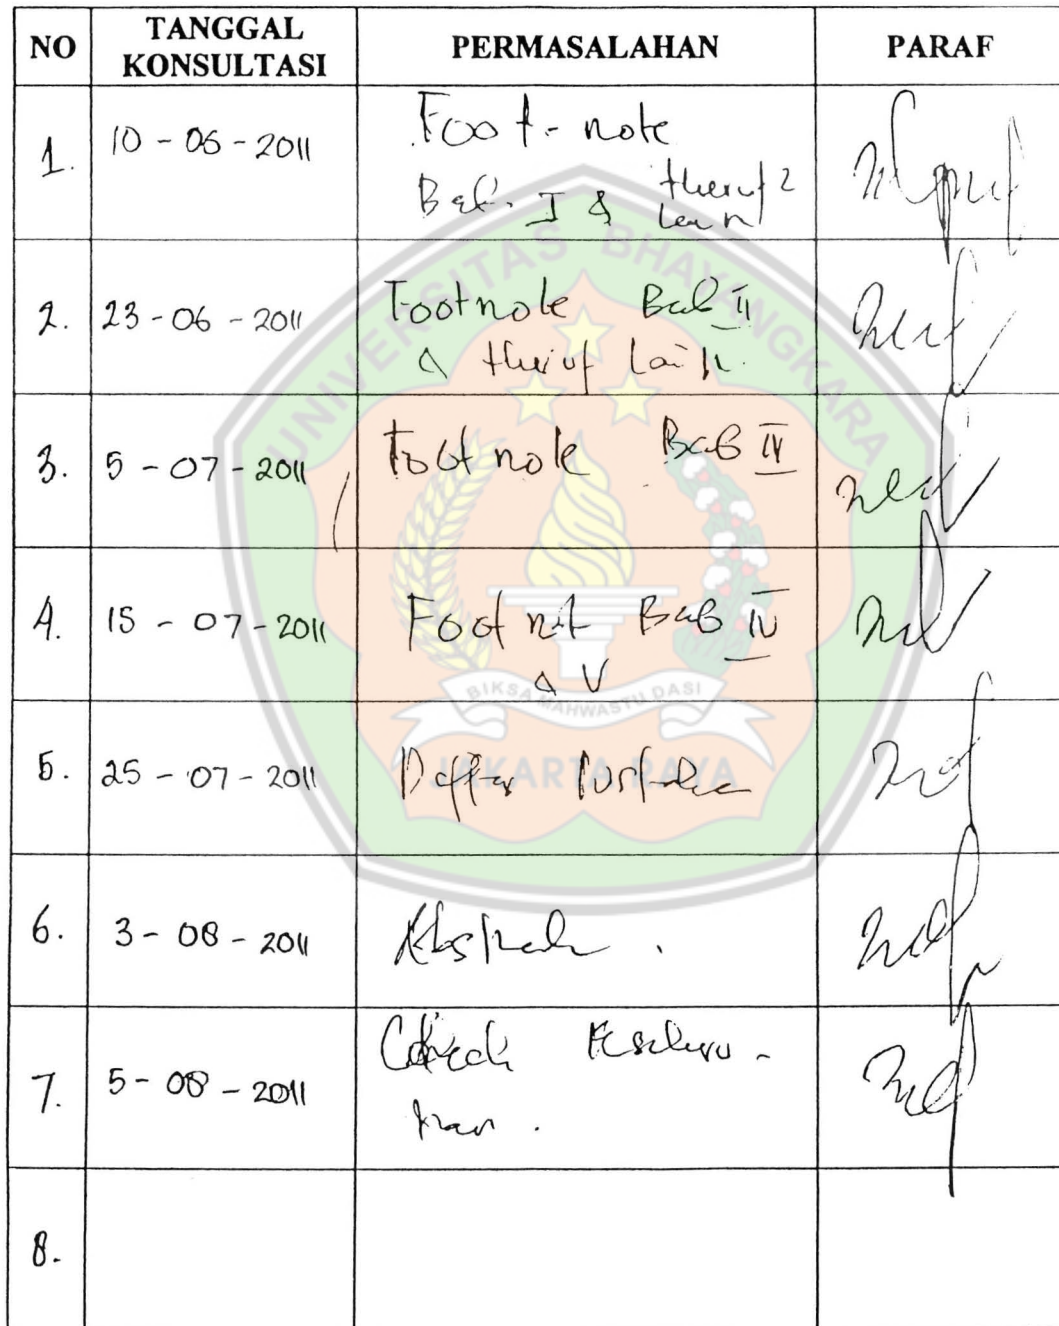 NO TANGGAL KONSULTASI PERMASALAHAN PARAF
1. 10 - 06 - 2011 Foot - note
Bab. I &
2. 23 - 06 - 2011 Footnote Bab II
& lain
3. 5 - 07 - 2011 Footnote Bab IV
4. 15 - 07 - 2011 Foot not Bab IV
& V
5. 25 - 07 - 2011 Daftar Pustaka
6. 3 - 08 - 2011 Abstrak .
7. 5 - 08 - 2011 Keseluru -
kan .
8.
UNIVERSITAS BHAYANGKARA
BIKSA MAHWASTU DASI
JAKARTA RAYA